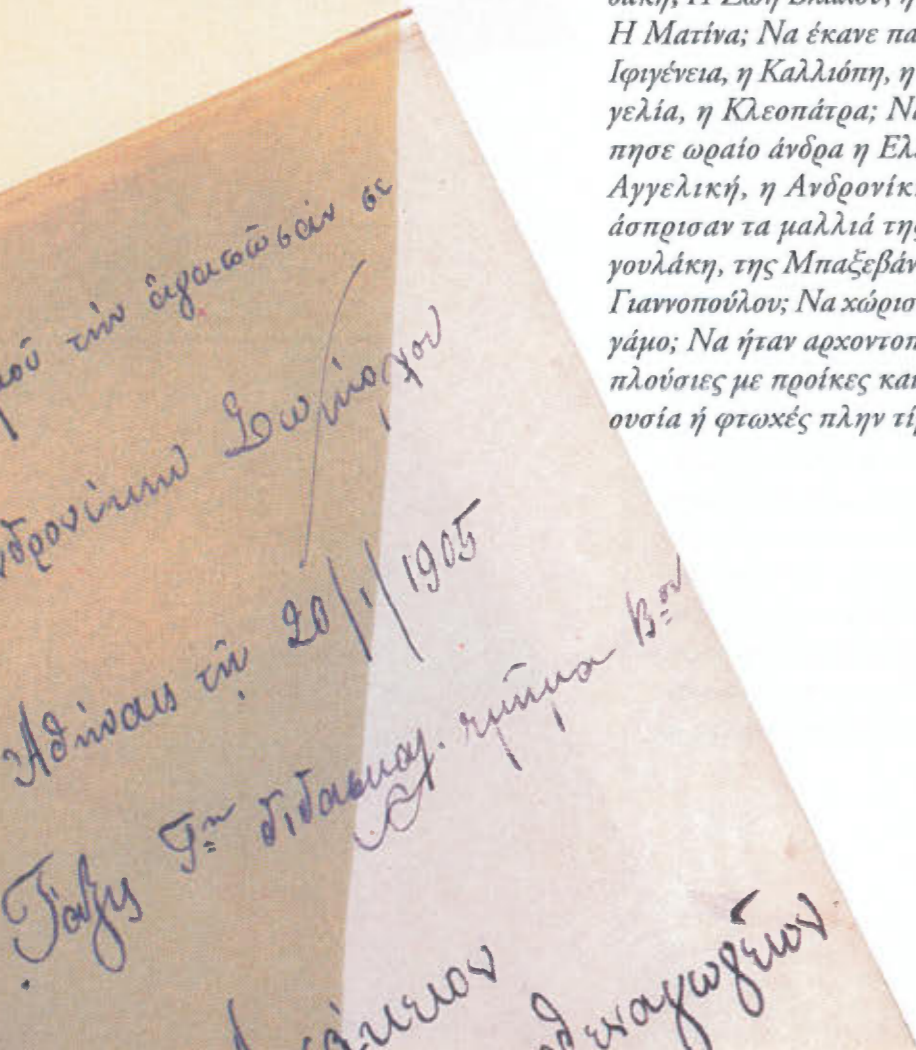 Η Ματίνα; Να έκανε πα
Ιφιγένεια, η Καλλιόπη, η
γελία, η Κλεοπάτρα; Να
πησε ωραίο άνδρα η Ελε
Αγγελική, η Ανδρονίκ
άσπρισαν τα μαλλιά της
γουλάκη, της Μπαξεβάν
Γιαννοπούλου; Να χώρισ
γάμο; Να ήταν αρχοντοπ
πλούσιες με προίκες και
ουσία ή φτωχές πλην τίμ
μοῦ τὴν ἀγαπῶσάν σε
νδρονίκην
Ἀθήναις τῇ 20/1/1905
Τάξις Γ=η διδασκαλ. τμῆμα Β=ον
άκειον
θεναγωγεῖον